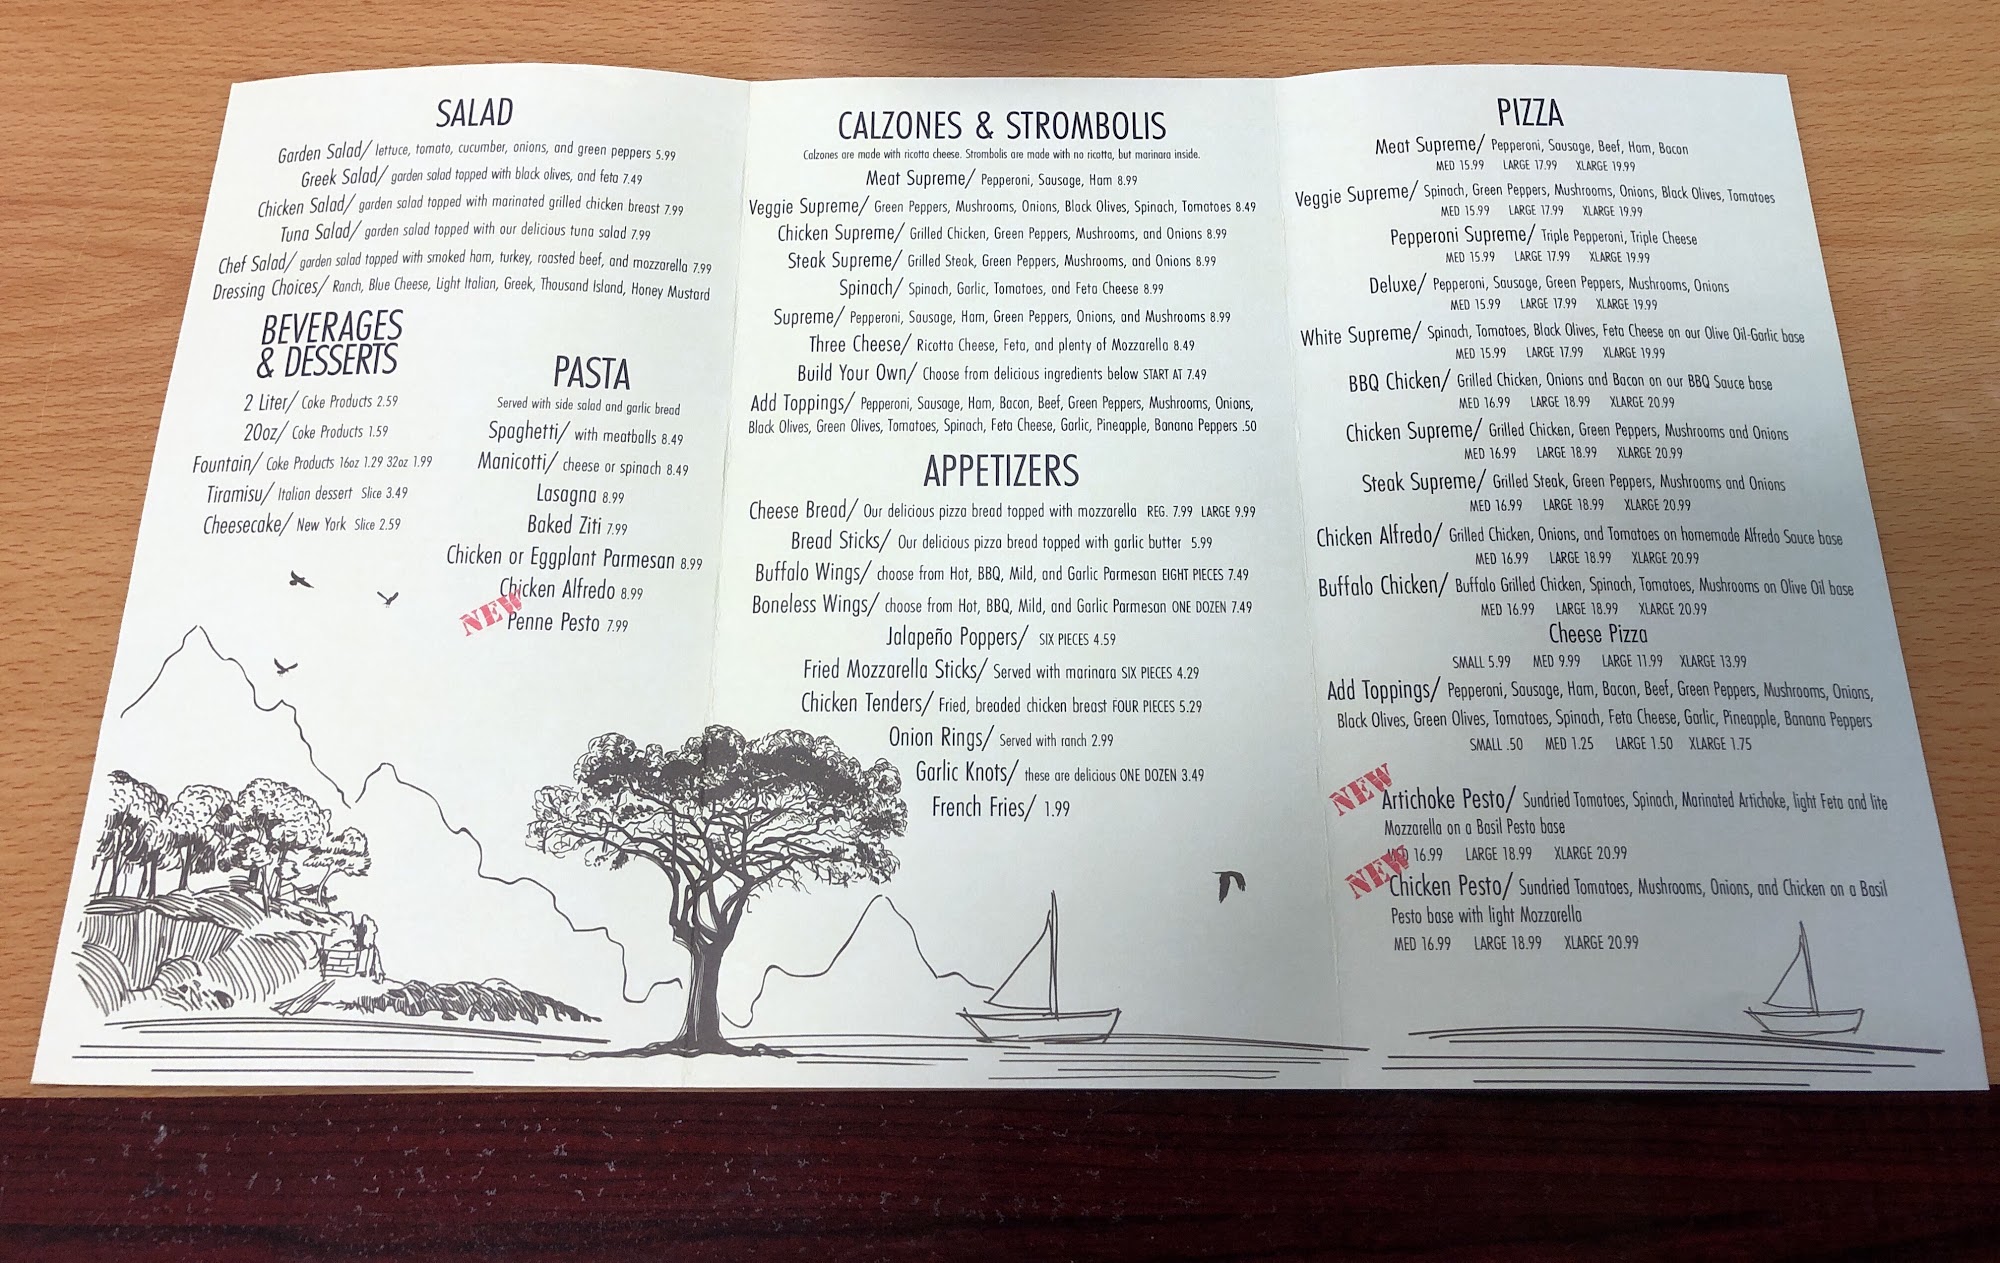 SALAD
Garden Salad/ lettuce, tomato, cucumber, onions, and green peppers 5.99
Greek Salad/ garden salad topped with black olives, and feta 7.49
Chicken Salad/ garden salad topped with marinated grilled chicken breast 7.99
Tuna Salad/ garden salad topped with our delicious tuna salad 7.99
Chef Salad/ garden salad topped with smoked ham, turkey, roasted beef, and mozzarella 7.99
Dressing Choices/ Ranch, Blue Cheese, Light Italian, Greek, Thousand Island, Honey Mustard
BEVERAGES
& DESSERTS
2 Liter/ Coke Products 2.59
20oz/ Coke Products 1.59
Fountain/ Coke Products 16oz 1.29 32oz 1.99
Tiramisu/ Italian dessert Slice 3.49
Cheesecake/ New York Slice 2.59
PASTA
Served with side salad and garlic bread
Spaghetti/ with meatballs 8.49
Manicotti/ cheese or spinach 8.49
Lasagna 8.99
Baked Ziti 7.99
Chicken or Eggplant Parmesan 8.99
Chicken Alfredo 8.99
NEW Penne Pesto 7.99
CALZONES & STROMBOLIS
Calzones are made with ricotta cheese. Strombolis are made with no ricotta, but marinara inside.
Meat Supreme/ Pepperoni, Sausage, Ham 8.99
Veggie Supreme/ Green Peppers, Mushrooms, Onions, Black Olives, Spinach, Tomatoes 8.49
Chicken Supreme/ Grilled Chicken, Green Peppers, Mushrooms, and Onions 8.99
Steak Supreme/ Grilled Steak, Green Peppers, Mushrooms, and Onions 8.99
Spinach/ Spinach, Garlic, Tomatoes, and Feta Cheese 8.99
Supreme/ Pepperoni, Sausage, Ham, Green Peppers, Onions, and Mushrooms 8.99
Three Cheese/ Ricotta Cheese, Feta, and plenty of Mozzarella 8.49
Build Your Own/ Choose from delicious ingredients below START AT 7.49
Add Toppings/ Pepperoni, Sausage, Ham, Bacon, Beef, Green Peppers, Mushrooms, Onions,
Black Olives, Green Olives, Tomatoes, Spinach, Feta Cheese, Garlic, Pineapple, Banana Peppers .50
APPETIZERS
Cheese Bread/ Our delicious pizza bread topped with mozzarella REG. 7.99 LARGE 9.99
Bread Sticks/ Our delicious pizza bread topped with garlic butter 5.99
Buffalo Wings/ choose from Hot, BBQ, Mild, and Garlic Parmesan EIGHT PIECES 7.49
Boneless Wings/ choose from Hot, BBQ, Mild, and Garlic Parmesan ONE DOZEN 7.49
Jalapeño Poppers/ SIX PIECES 4.59
Fried Mozzarella Sticks/ Served with marinara SIX PIECES 4.29
Chicken Tenders/ Fried, breaded chicken breast FOUR PIECES 5.29
Onion Rings/ Served with ranch 2.99
Garlic Knots/ these are delicious ONE DOZEN 3.49
French Fries/ 1.99
PIZZA
Meat Supreme/ Pepperoni, Sausage, Beef, Ham, Bacon
MED 15.99 LARGE 17.99 XLARGE 19.99
Veggie Supreme/ Spinach, Green Peppers, Mushrooms, Onions, Black Olives, Tomatoes
MED 15.99 LARGE 17.99 XLARGE 19.99
Pepperoni Supreme/ Triple Pepperoni, Triple Cheese
MED 15.99 LARGE 17.99 XLARGE 19.99
Deluxe/ Pepperoni, Sausage, Green Peppers, Mushrooms, Onions
MED 15.99 LARGE 17.99 XLARGE 19.99
White Supreme/ Spinach, Tomatoes, Black Olives, Feta Cheese on our Olive Oil-Garlic base
MED 15.99 LARGE 17.99 XLARGE 19.99
BBQ Chicken/ Grilled Chicken, Onions and Bacon on our BBQ Sauce base
MED 16.99 LARGE 18.99 XLARGE 20.99
Chicken Supreme/ Grilled Chicken, Green Peppers, Mushrooms and Onions
MED 16.99 LARGE 18.99 XLARGE 20.99
Steak Supreme/ Grilled Steak, Green Peppers, Mushrooms and Onions
MED 16.99 LARGE 18.99 XLARGE 20.99
Chicken Alfredo/ Grilled Chicken, Onions, and Tomatoes on homemade Alfredo Sauce base
MED 16.99 LARGE 18.99 XLARGE 20.99
Buffalo Chicken/ Buffalo Grilled Chicken, Spinach, Tomatoes, Mushrooms on Olive Oil base
MED 16.99 LARGE 18.99 XLARGE 20.99
Cheese Pizza
SMALL 5.99 MED 9.99 LARGE 11.99 XLARGE 13.99
Add Toppings/ Pepperoni, Sausage, Ham, Bacon, Beef, Green Peppers, Mushrooms, Onions,
Black Olives, Green Olives, Tomatoes, Spinach, Feta Cheese, Garlic, Pineapple, Banana Peppers
SMALL .50 MED 1.25 LARGE 1.50 XLARGE 1.75
NEW Artichoke Pesto/ Sundried Tomatoes, Spinach, Marinated Artichoke, light Feta and lite
Mozzarella on a Basil Pesto base
MED 16.99 LARGE 18.99 XLARGE 20.99
NEW Chicken Pesto/ Sundried Tomatoes, Mushrooms, Onions, and Chicken on a Basil
Pesto base with light Mozzarella
MED 16.99 LARGE 18.99 XLARGE 20.99